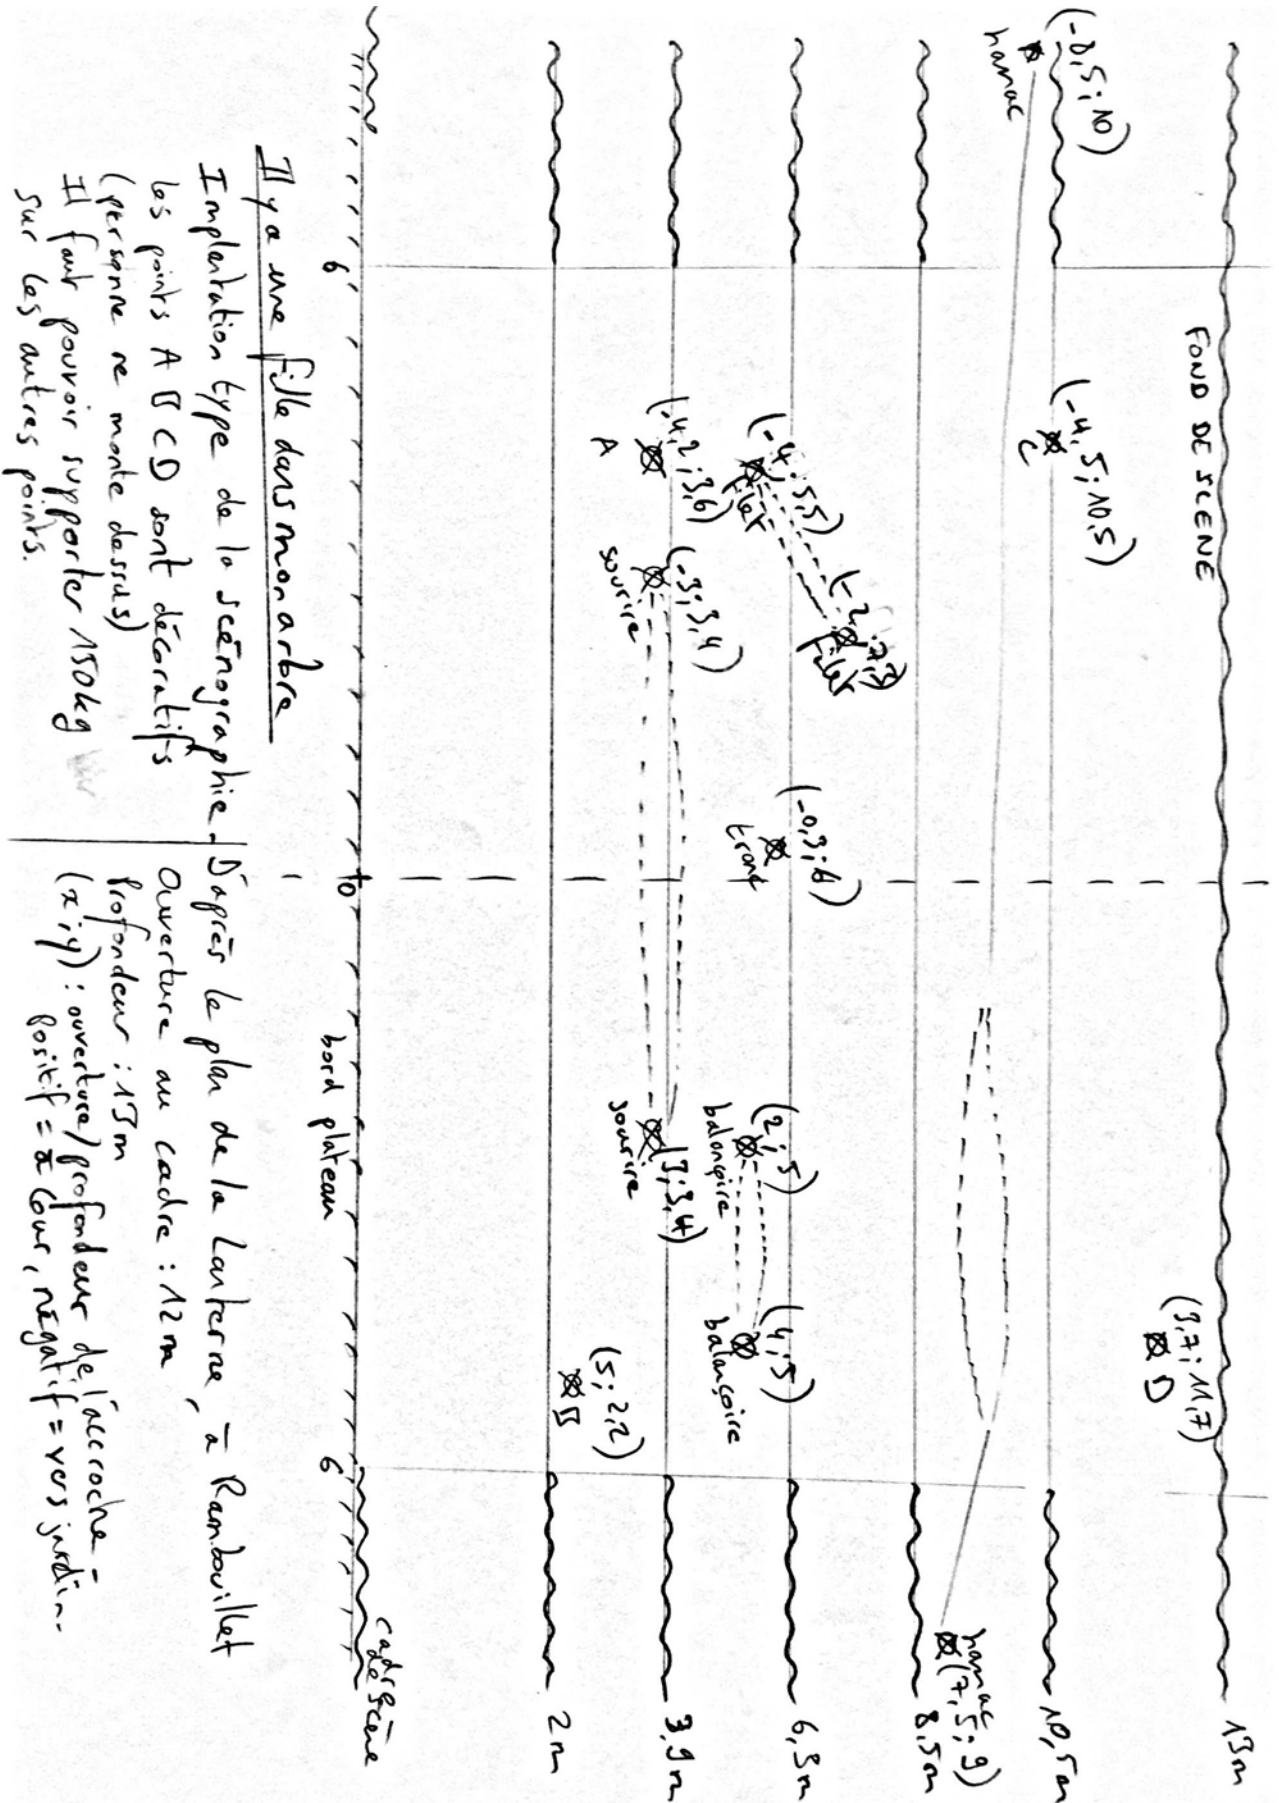 FOND DE SCENE
13m
(-8,5 ; 10)
hamac
(-4,5 ; 10,5)
C
(3,7 ; 11,7)
D
10,5m
hamac
(7,5 ; 9)
8,5m
(-4 ; 5,5)
filet
filet
(-0,3 ; 6)
tronc
(2 ; 5)
balançoire
(4 ; 5)
balançoire
6,3m
(-4,2 ; 3,6)
A
(-3 ; 3,4)
sourire
(3 ; 3,4)
sourire
3,9m
(5 ; 2,2)
B
2m
6
0
6
bord plateau
cadre
de scène
Il y a une fille dans mon arbre
Implantation type de la scénographie.
Les points A B C D sont décoratifs
(personne ne monte dessus)
Il faut pouvoir supporter 150kg
sur les autres points.
D'après le plan de la Lanterne, à Rambouillet
Ouverture au cadre : 12m
Profondeur : 13m
(x ; y) : ouverture/profondeur de l'accroche -
Positif = à Cour, négatif = vers jardin -